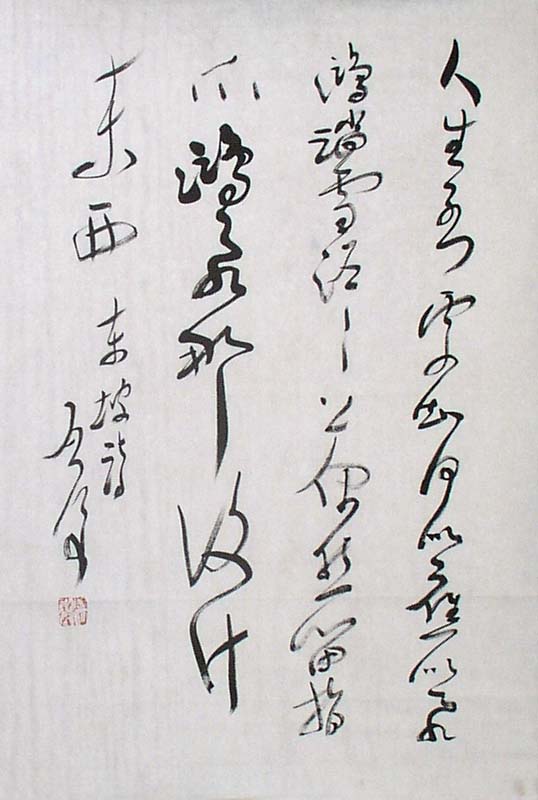 人生到處知何似應似飛
鴻踏雪泥泥上偶然留指
爪鴻飛那復計
東西
東坡詩